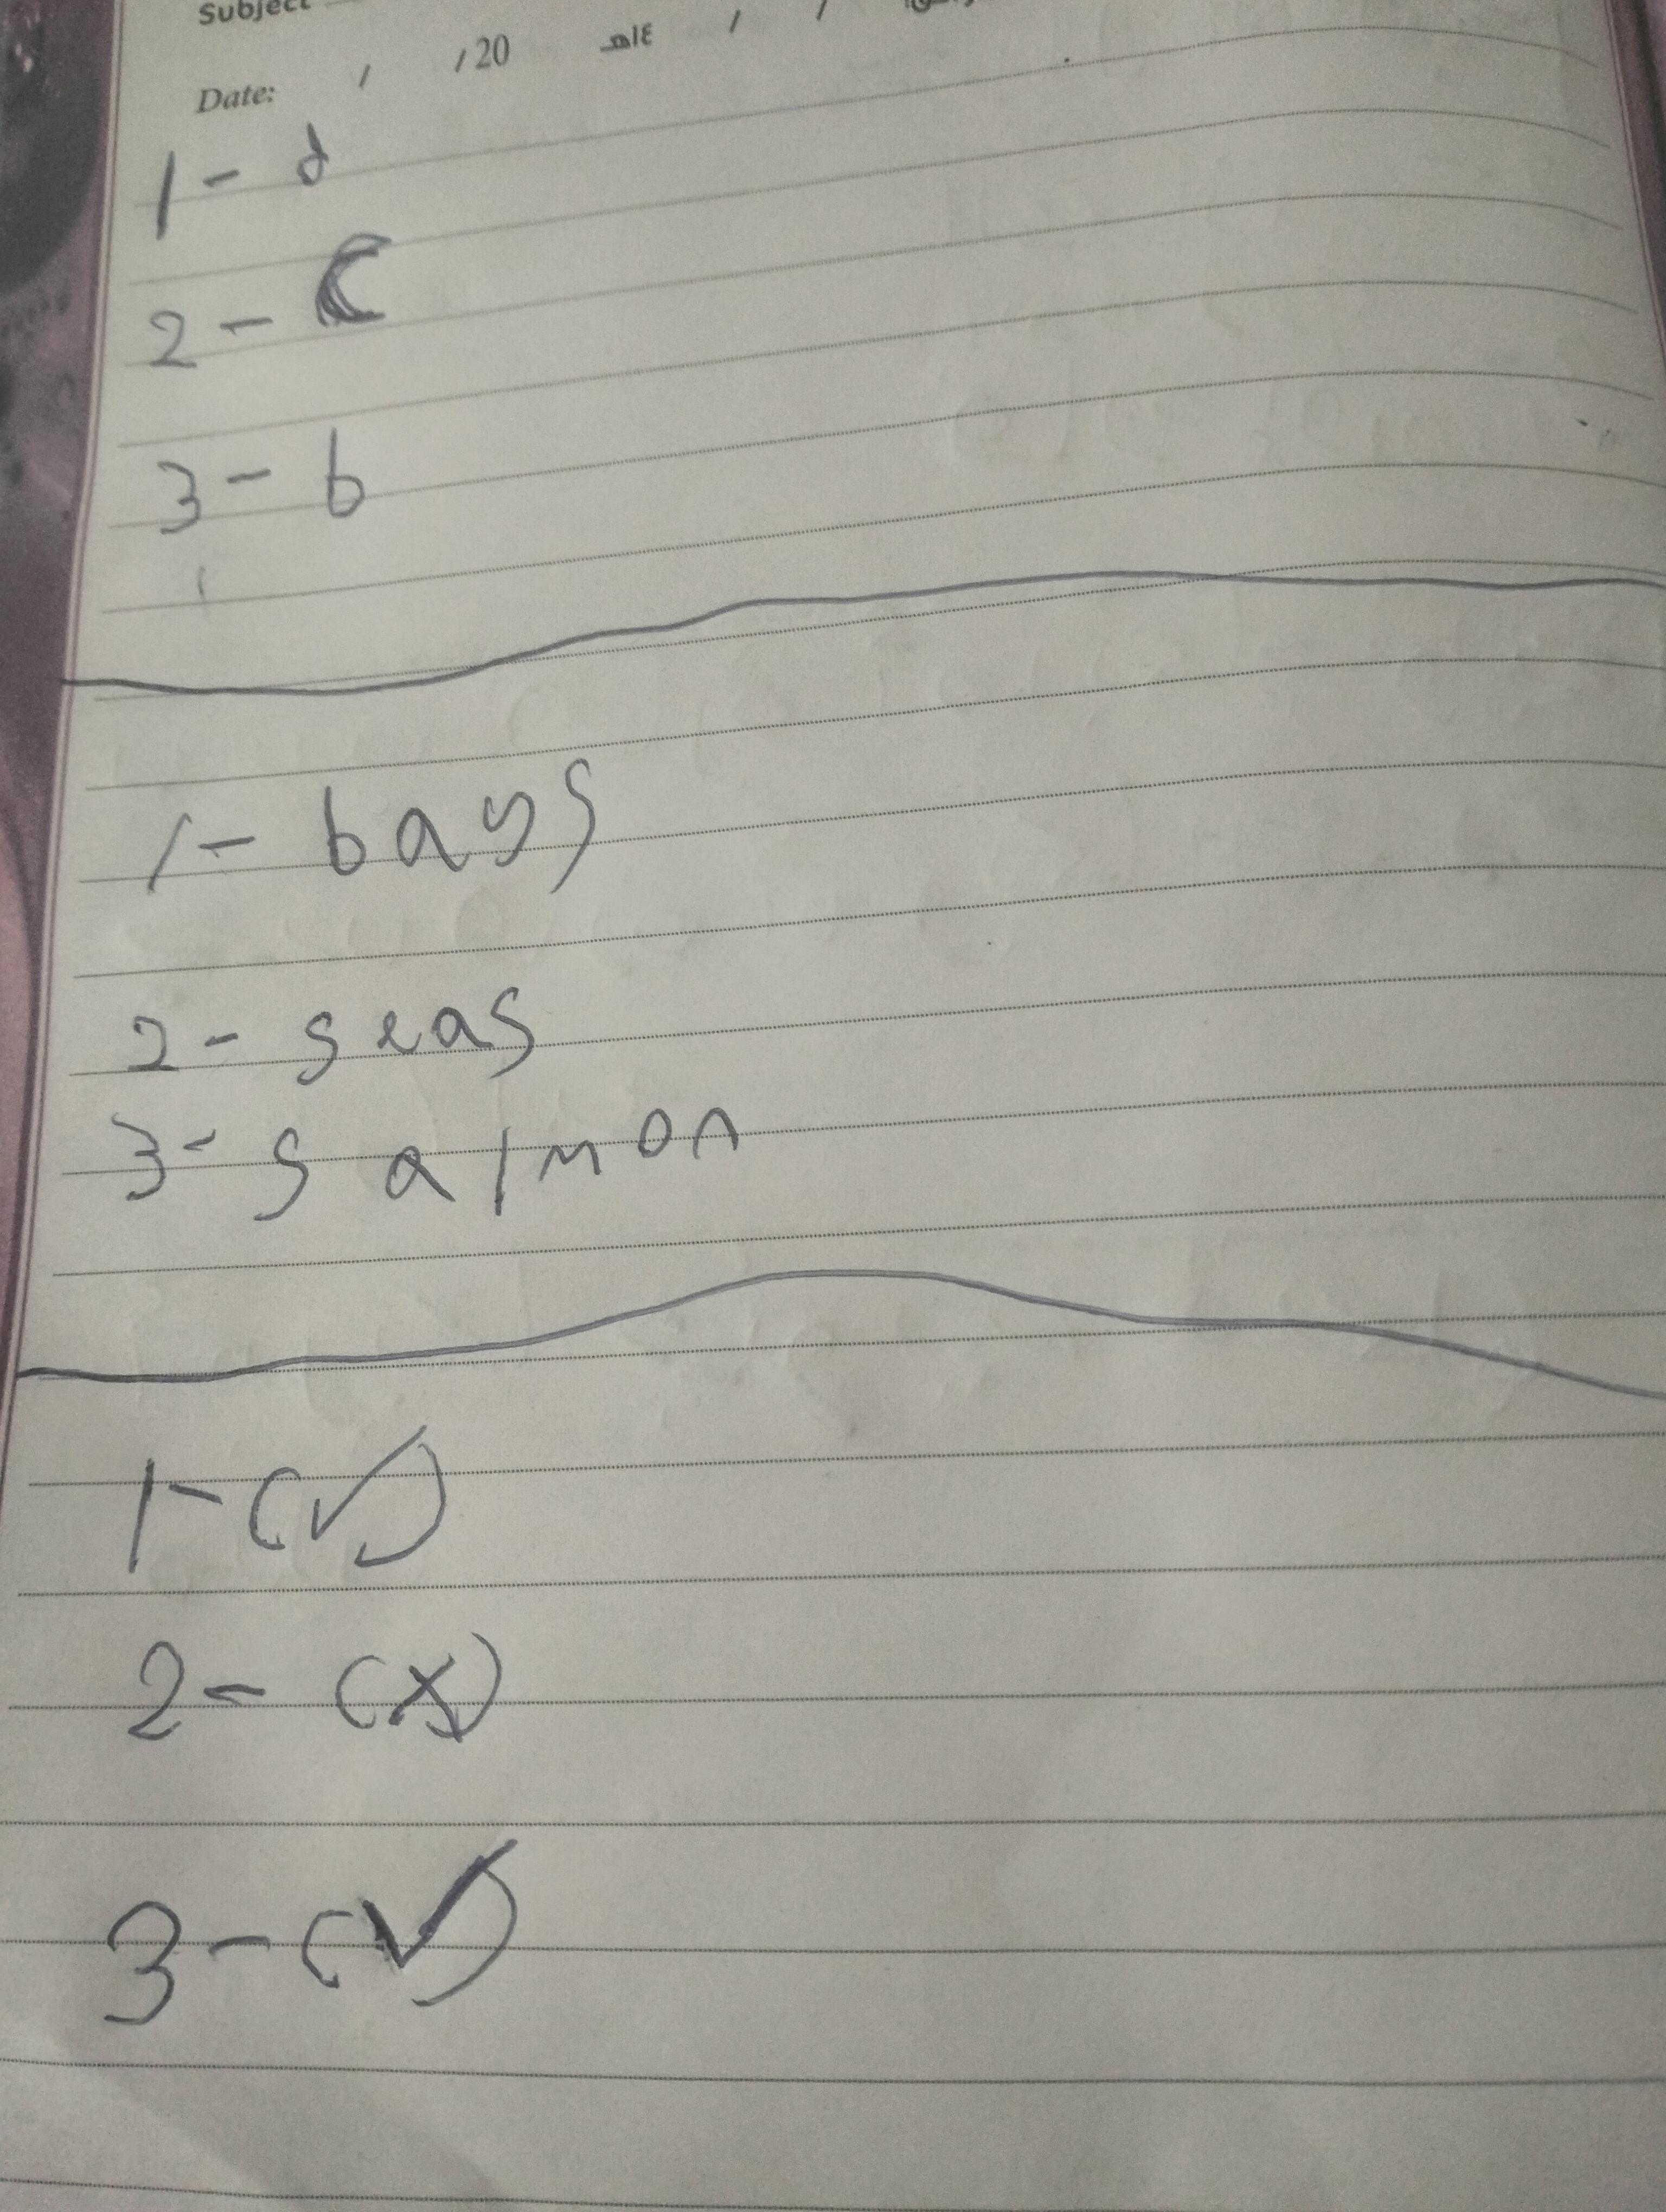 Subject
Date: / /20 / / ١٤هـ
1- d
2- C
3- b
1- bays
2- seas
3- salmon
1- (✓)
2- (x)
3- (✓)